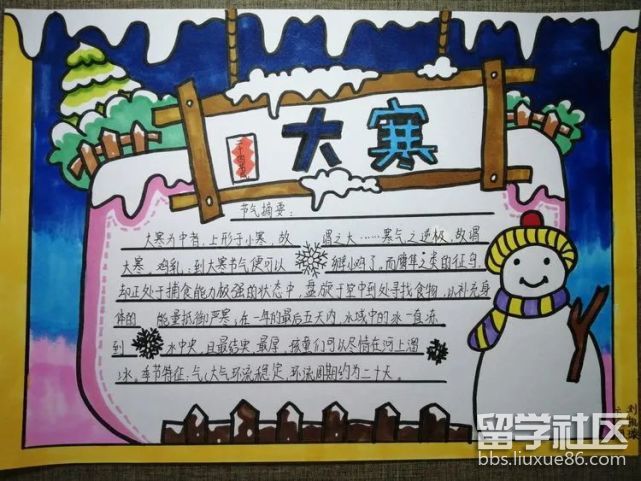 大寒
二十四节气
节气摘要：
大寒为中者，上形于小寒，故 谓之大……寒气之逆极，故谓
大寒。鸡乳：到大寒节气便可以 孵小鸡了，而鹰隼之类的征鸟，
却正处于捕食能力极强的状态中，盘旋于空中到处寻找食物，以补充身
体的 能量抵御严寒；在一年的最后五天内，水域中的冰一直冻
到 水中央，且最结实、最厚，孩童们可以尽情在河上溜
冰。季节特征：气（大气环流稳定，环流周期约为二十天。
留学社区
bbs.liuxue86.com